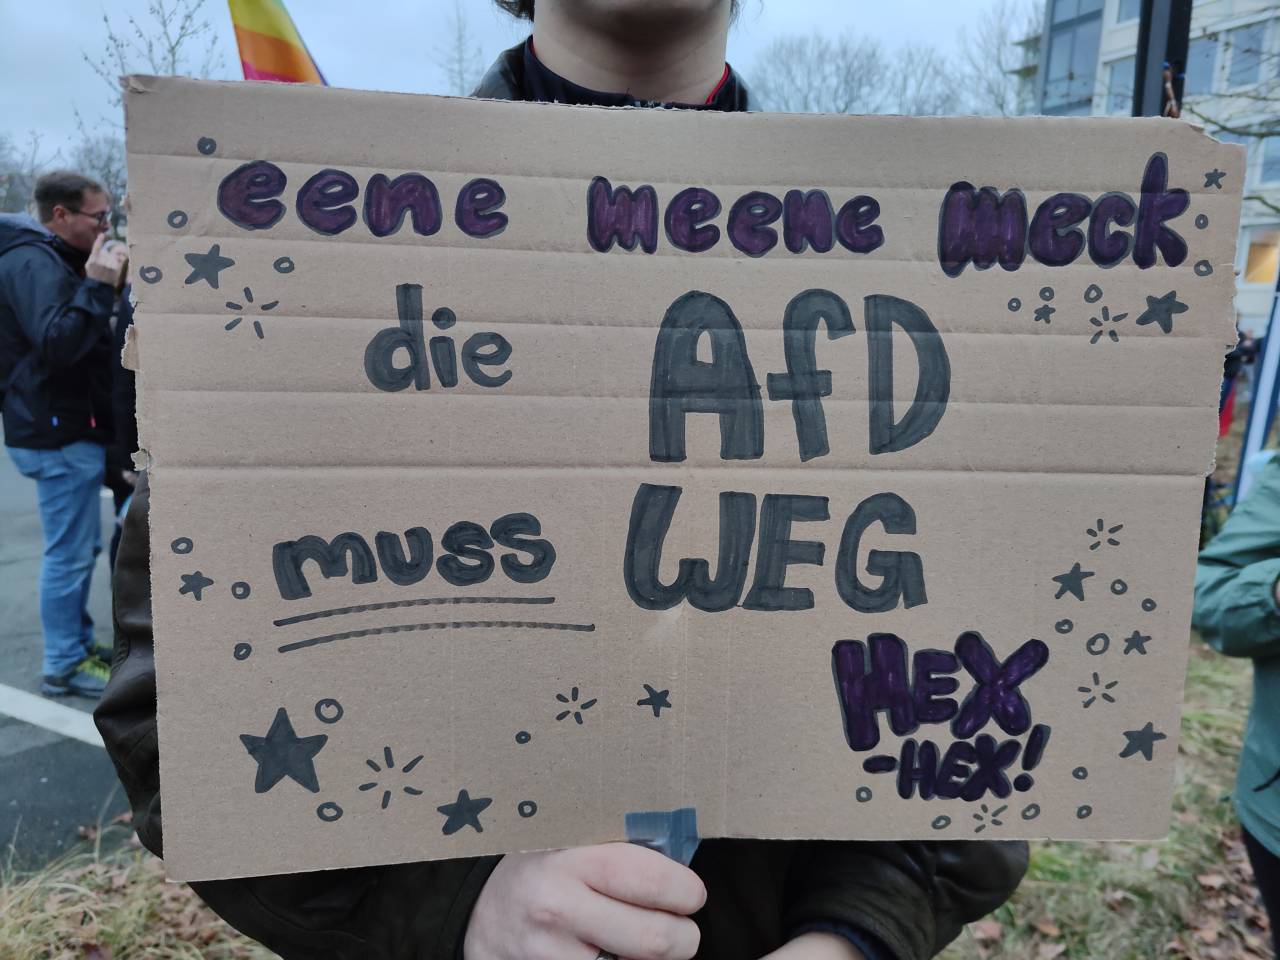 eene meene meck
die AfD
muss WEG
HEX
-HEX!